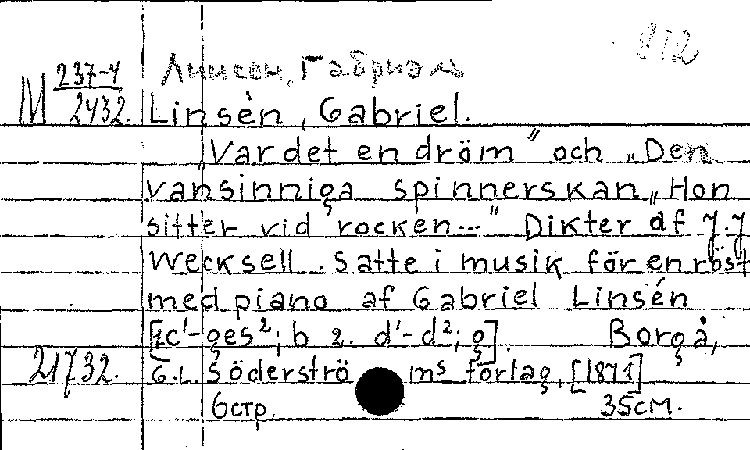 812
Линсен, Габриэль
М 237-4/2432.
Linsèn, Gabriel.
„Var det en dröm" och „Den
vansinniga spinnerskan„ Hon
sitter vid rocken..." Dikter af J.J
Wecksell. Satte i musik för en röst
med piano af Gabriel Linsén
[c'-ges²; b 2. d'-d²; g]. Borgå,
21732. G.L. Söderströms förlag, [1871]
6стр. 35см.